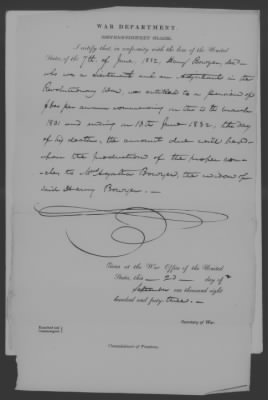 WAR DEPARTMENT.
REVOLUTIONARY CLAIM.
I certify that, in conformity with the law of the United
States, of the 7th of June, 1832, Henry Bowyer, dec'd
who was a Lieutenant and an Adjutant in the
Revolutionary War, was entitled to a pension of
per annum commencing on the 4th March
1831 and ending on 13th June 1832, the day
of his death; the amount due will be paid
upon the production of the proper vou-
cher to Mrs Agatha Bowyer, the widow of
said Henry Bowyer. —
Given at the War Office of the United
States, this — 2d — day of
September one thousand eight
hundred and forty three. —
Secretary of War.
Examined and
Countersigned
Commissioner of Pensions.